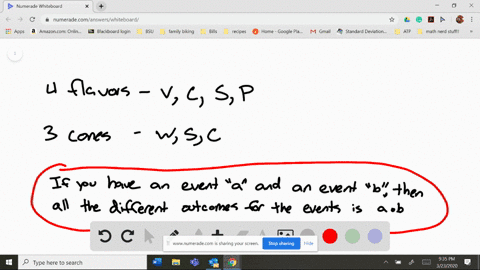 Numerade Whiteboard
numerade.com/answers/whiteboard/
Apps
Amazon.com: Onlin...
Blackboard login
BSU
family biking
Bills
recipes
Home - Google Pla...
Gmail
Standard Deviation...
ATF
math nerd stuff!
4 flavors - V, C, S, P
3 cones - W, S, C
If you have an event "a" and an event "b", then
all the different outcomes for the events is a∘b
www.numerade.com is sharing your screen.
Stop sharing
Hide
Type here to search
9:35 PM
3/23/2020